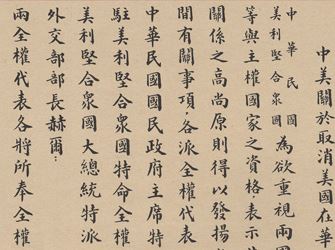 中美關於取消美國在華
中華民國
美利堅合衆國
為欲重視兩
等與主權國家之資格,表示
關係之高尚原則得以發揚
間有關事項,各派全權代表
中華民國國民政府主席特
駐美利堅合衆國特命全權
美利堅合衆國大總統特派
外交部部長赫爾:
兩全權代表各將所奉全權